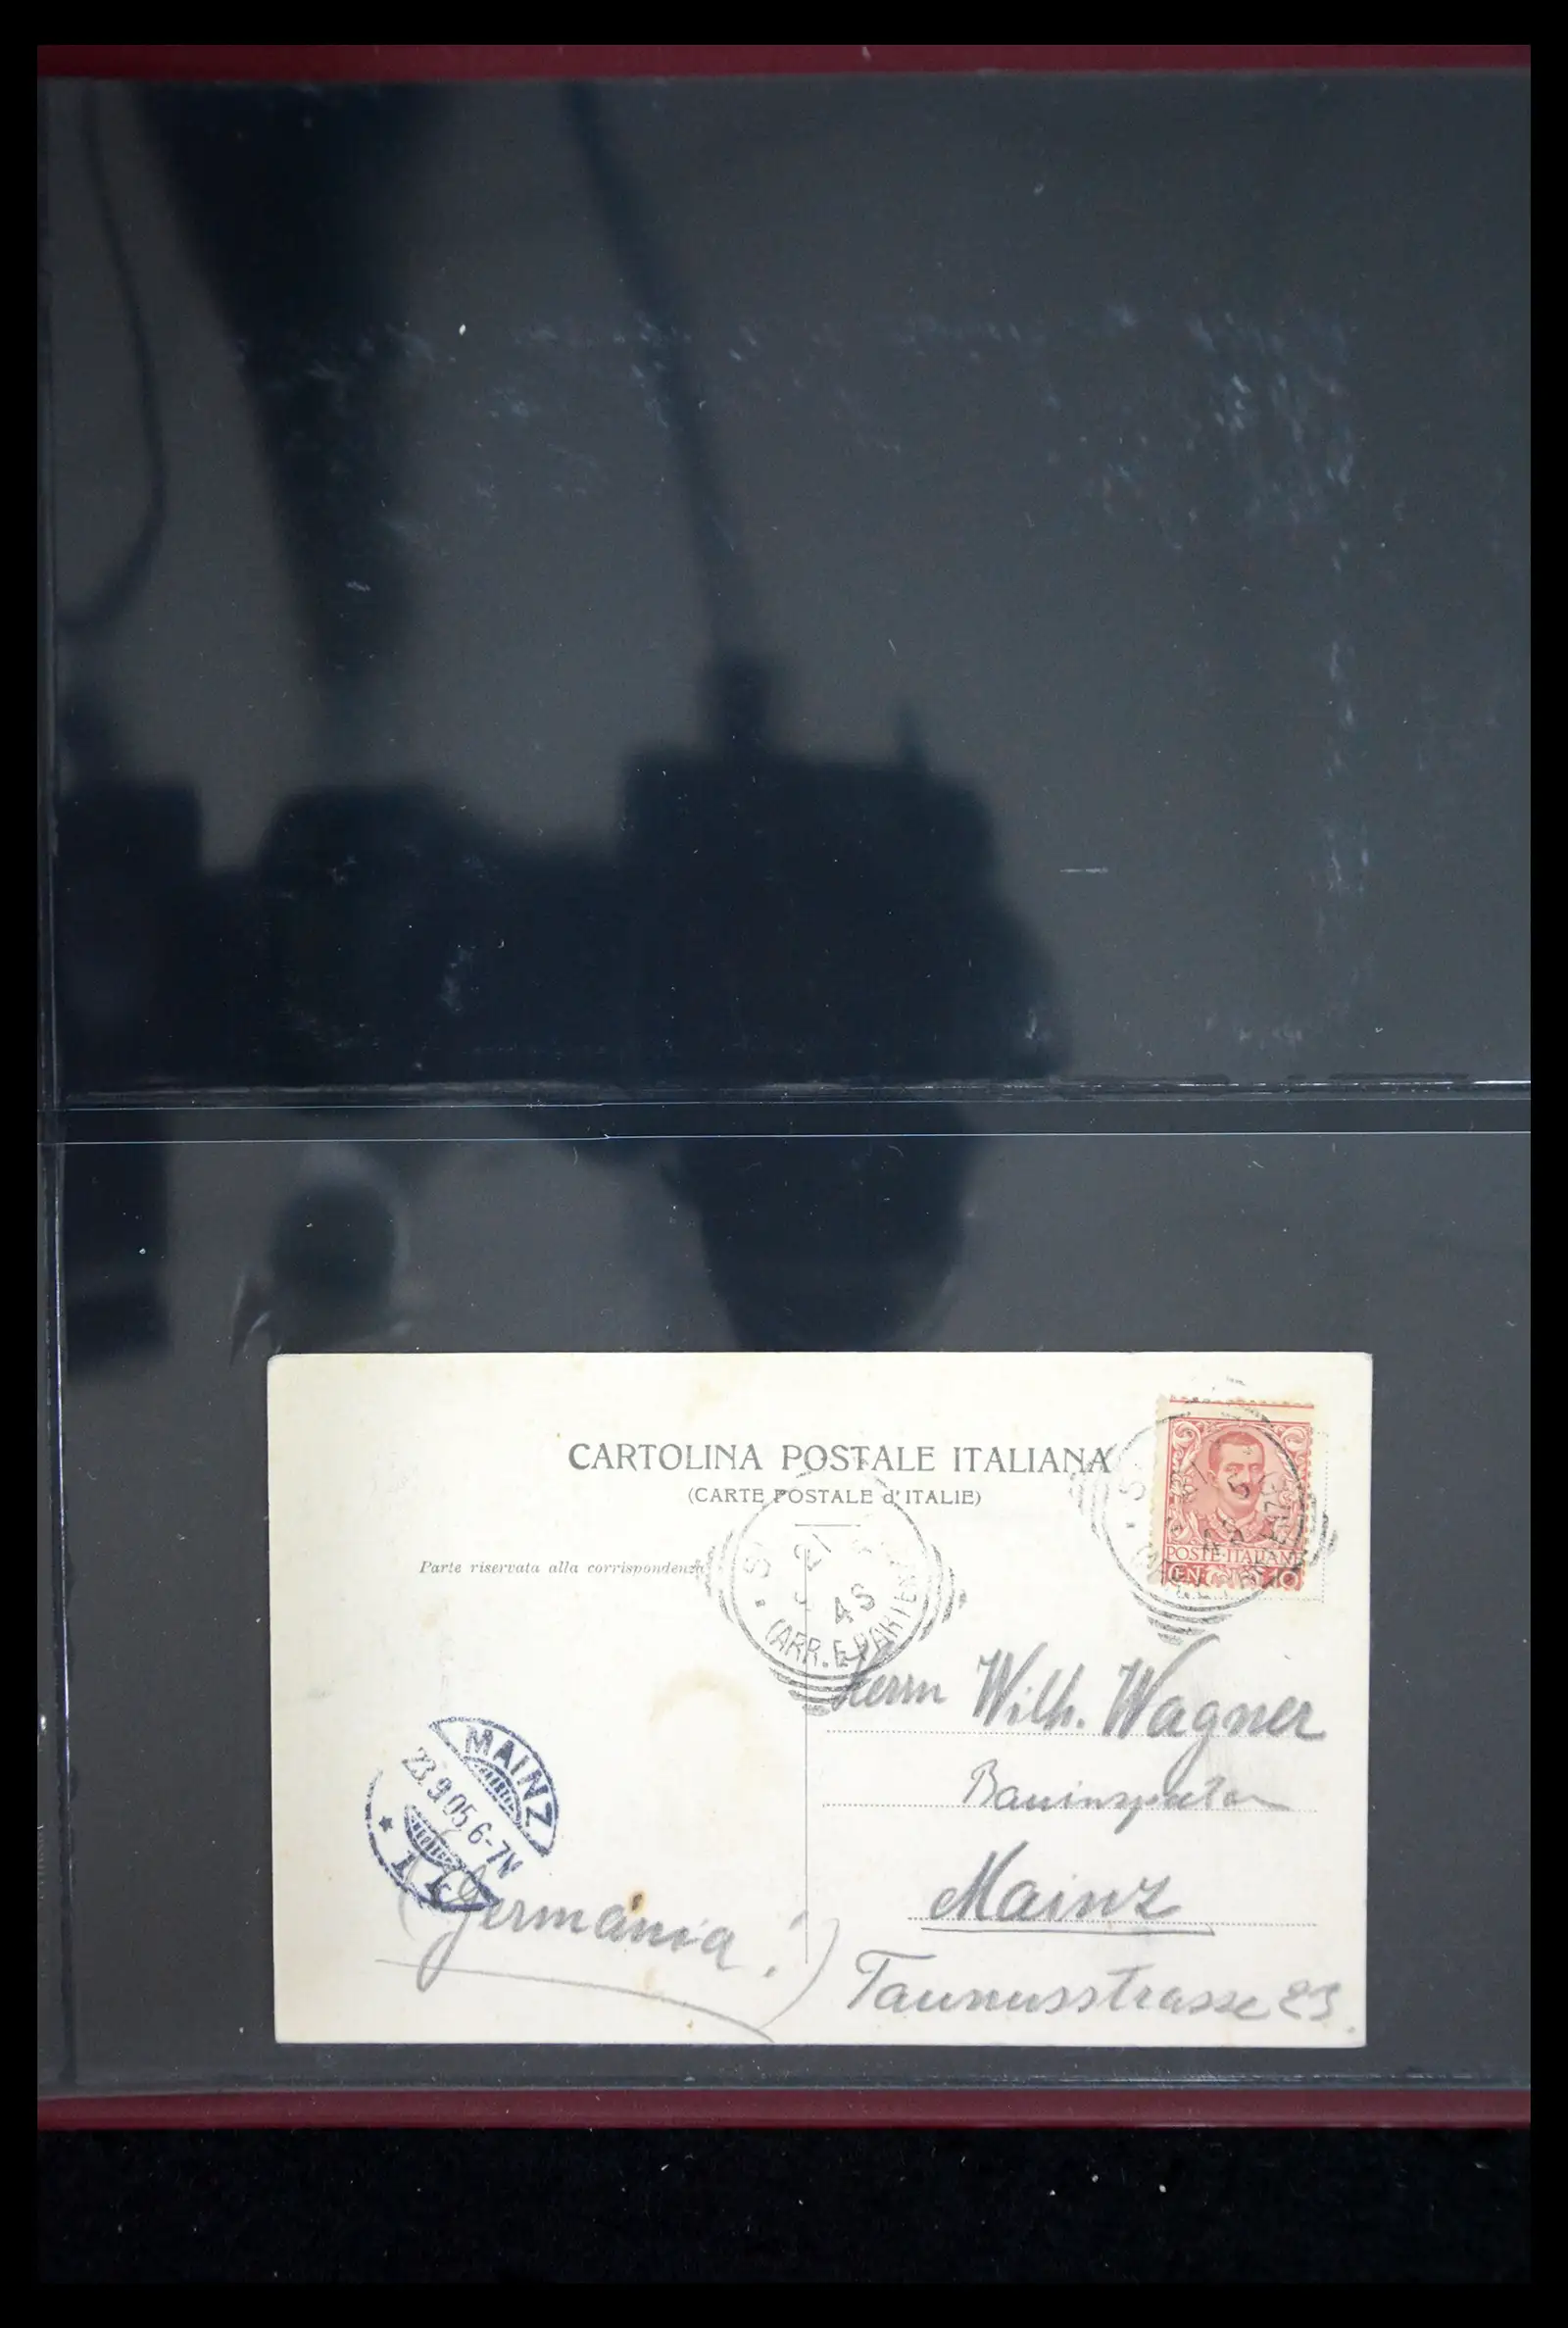 CARTOLINA POSTALE ITALIANA
(CARTE POSTALE d'ITALIE)
Parte riservata alla corrispondenza
POSTE ITALIANE
CENT. 10
21
(ARR. E PARTENZE)
Herrn Wilh. Wagner
Bauinspektor
Mainz
Taunusstrasse
(Germania!)
MAINZ
23.9.05 6-7N